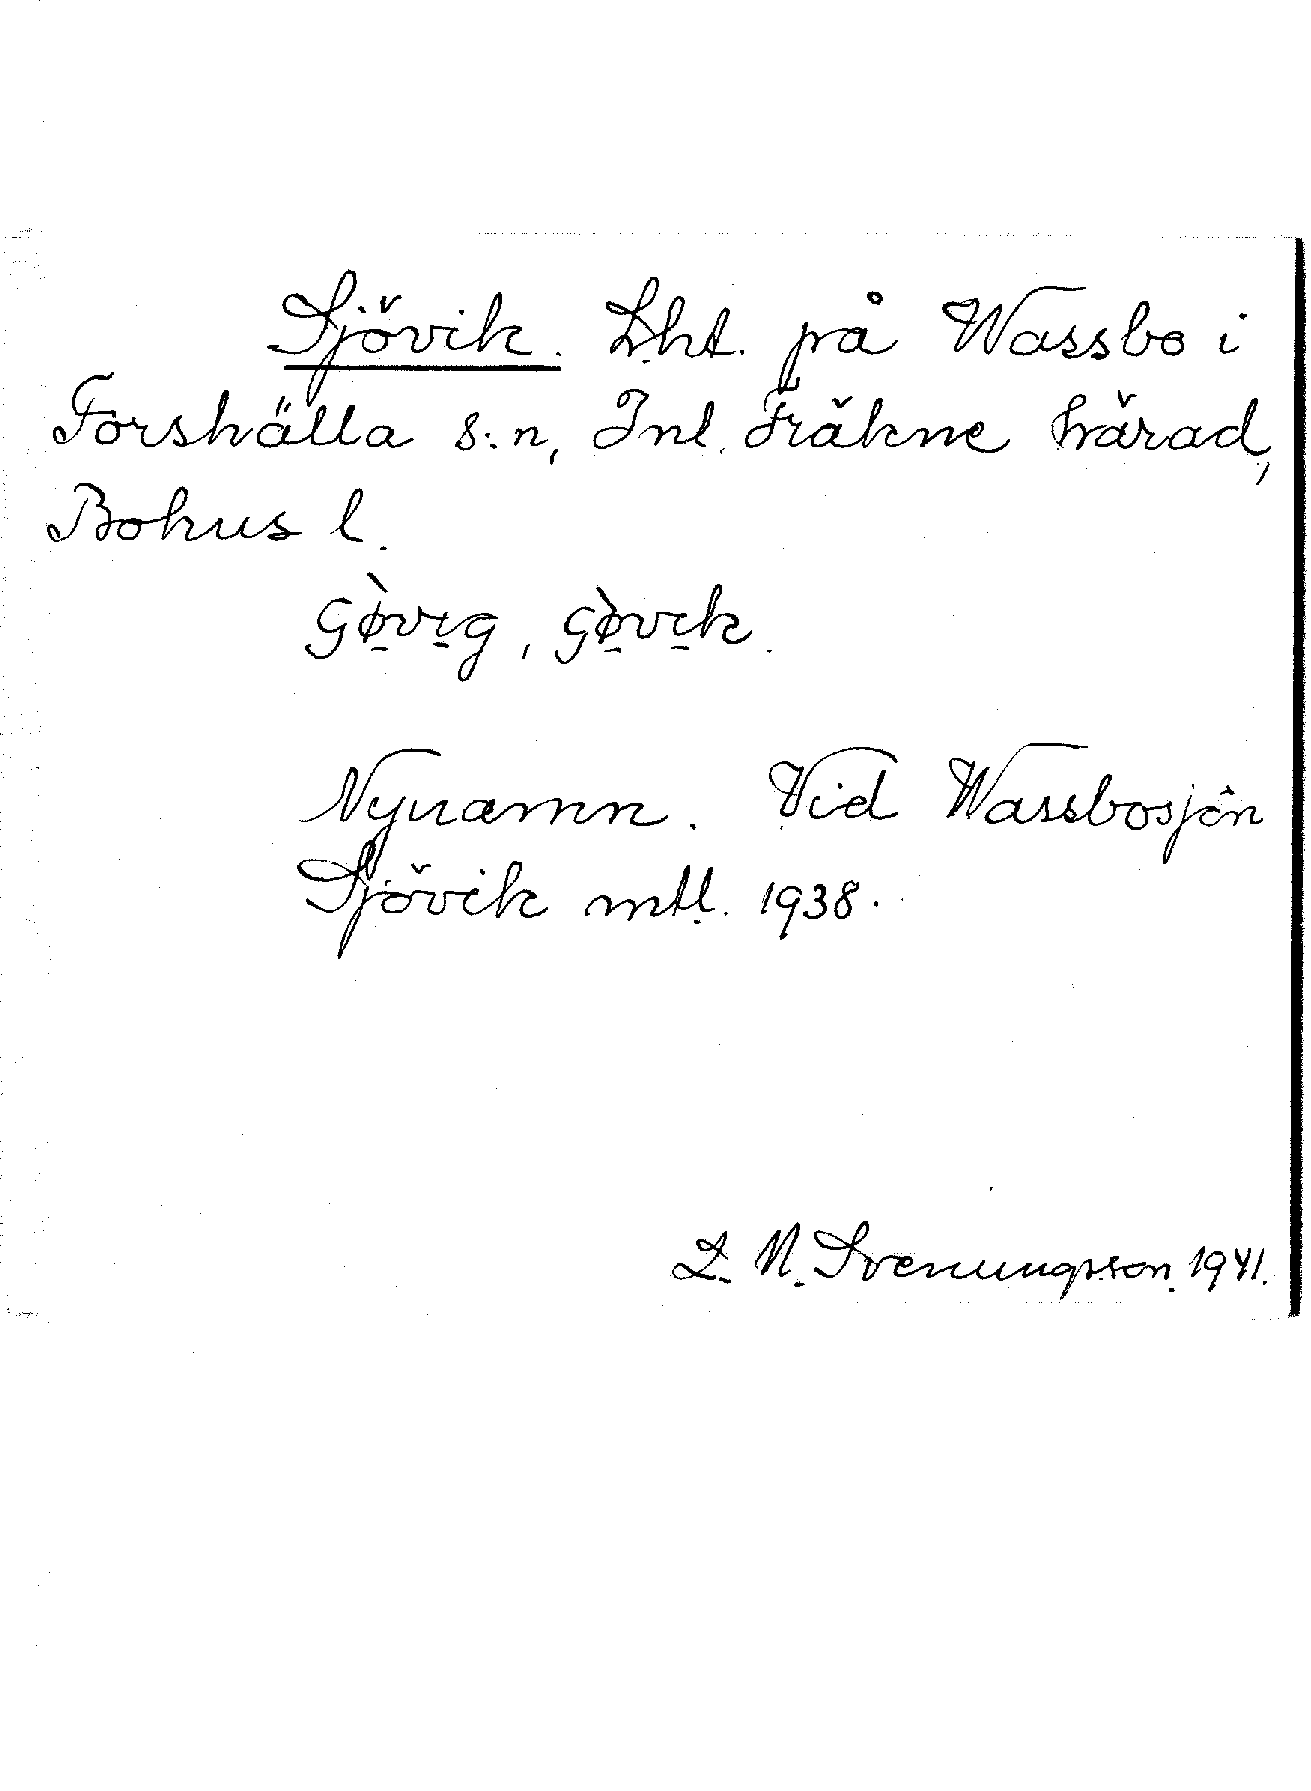 Sjövik. Lht. på Wassbo i
Forshälla s:n, Inl. Fräkne härad,
Bohus l.
Gø̀vıg, Gø̀vık.
Nynamn. Vid Wassbosjön
Sjövik mtl. 1938.
L. N. Svenungsson. 1941.